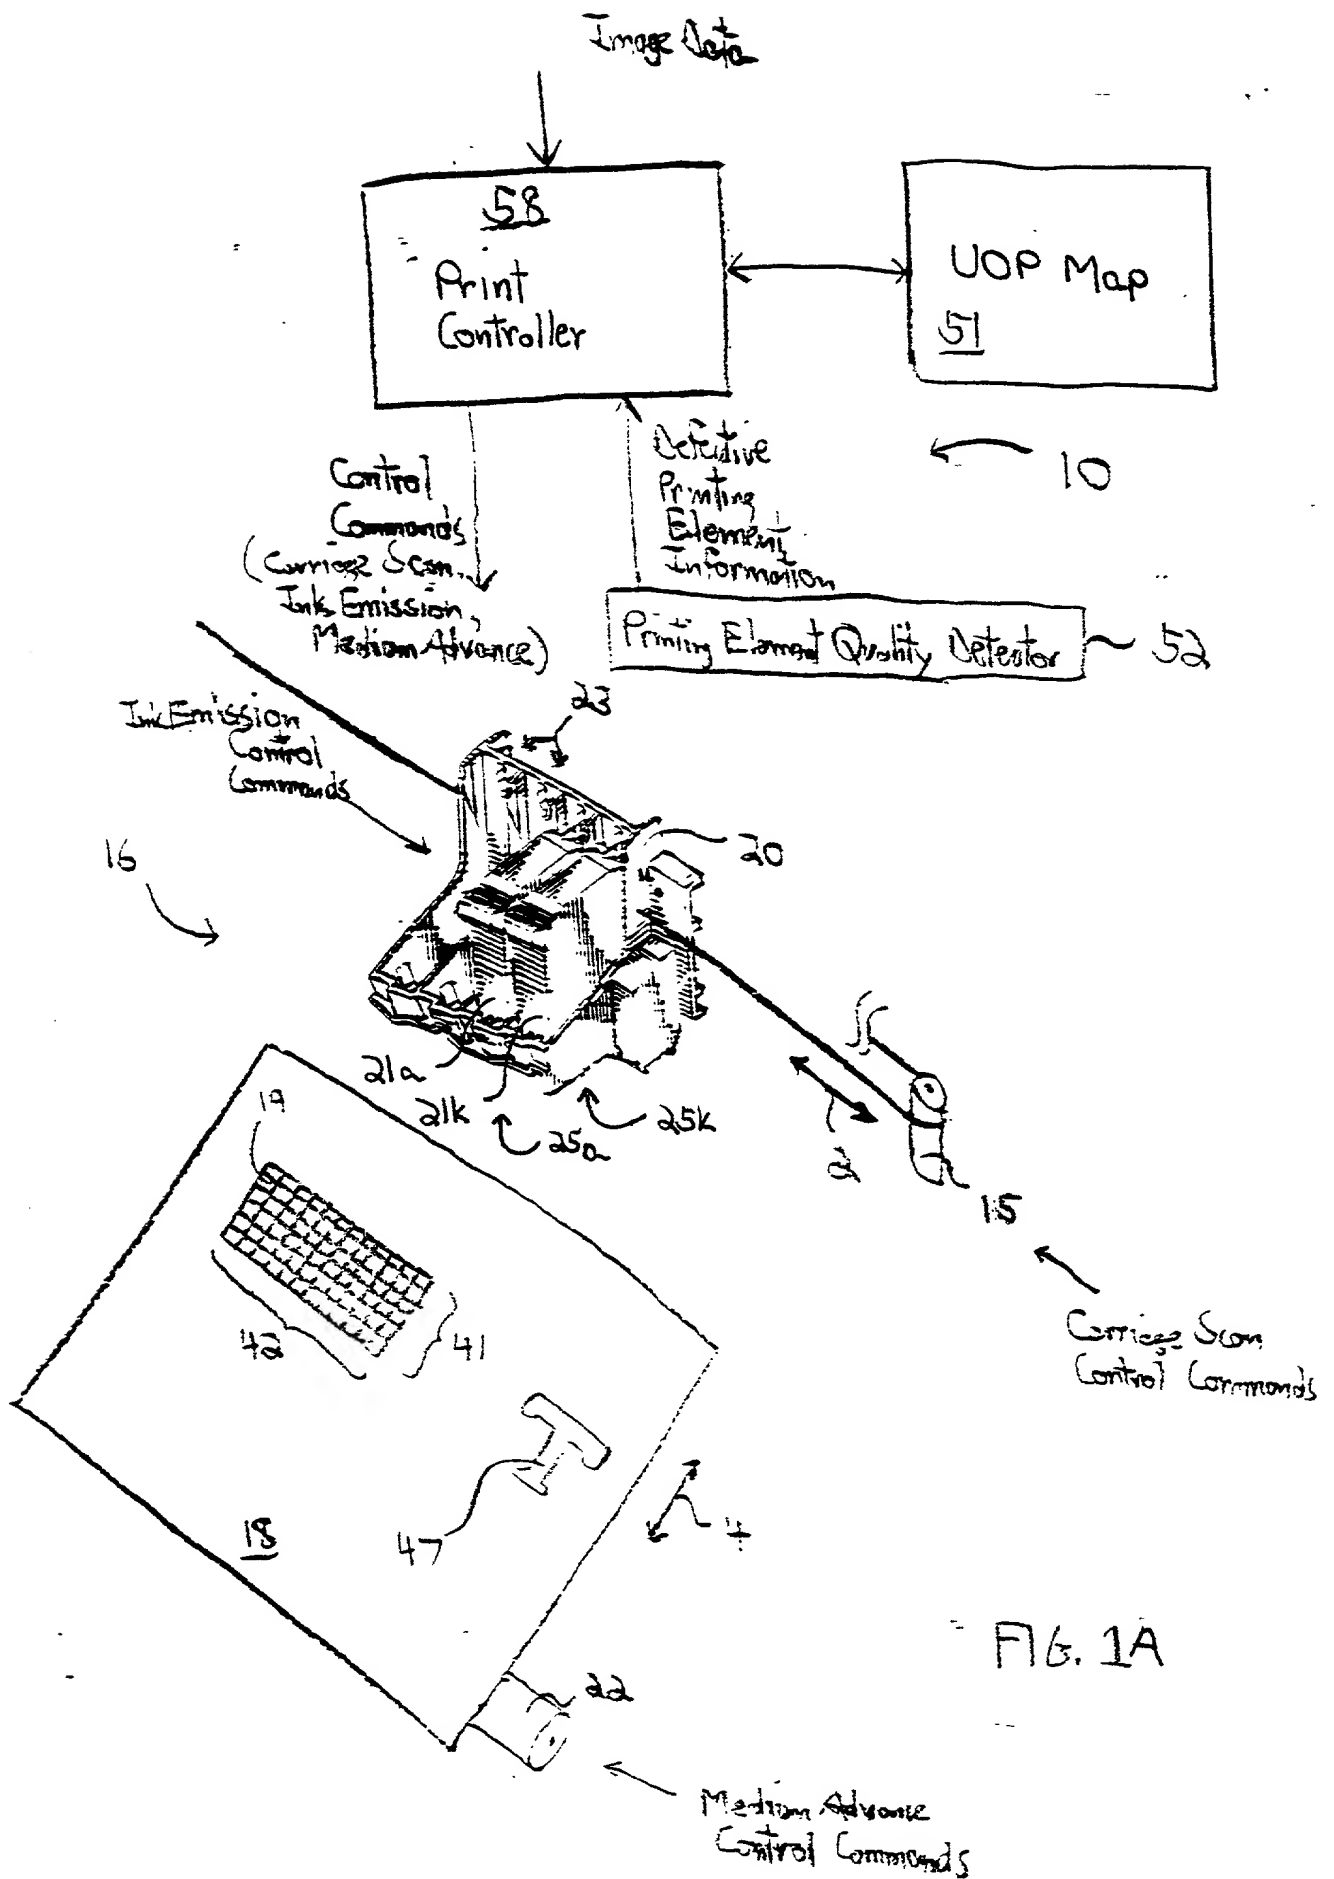 Image Data
58
Print
Controller
UOP Map
51
10
Control
Commands
(Carriage Scan,
Ink Emission,
Medium Advance)
Defective
Printing
Element
Information
Printing Element Quality Detector
52
Ink Emission
Control
Commands
23
20
16
21a
21k
25a
25k
2
15
Carriage Scan
Control Commands
19
42
41
47
4
18
22
FIG. 1A
Medium Advance
Control Commands